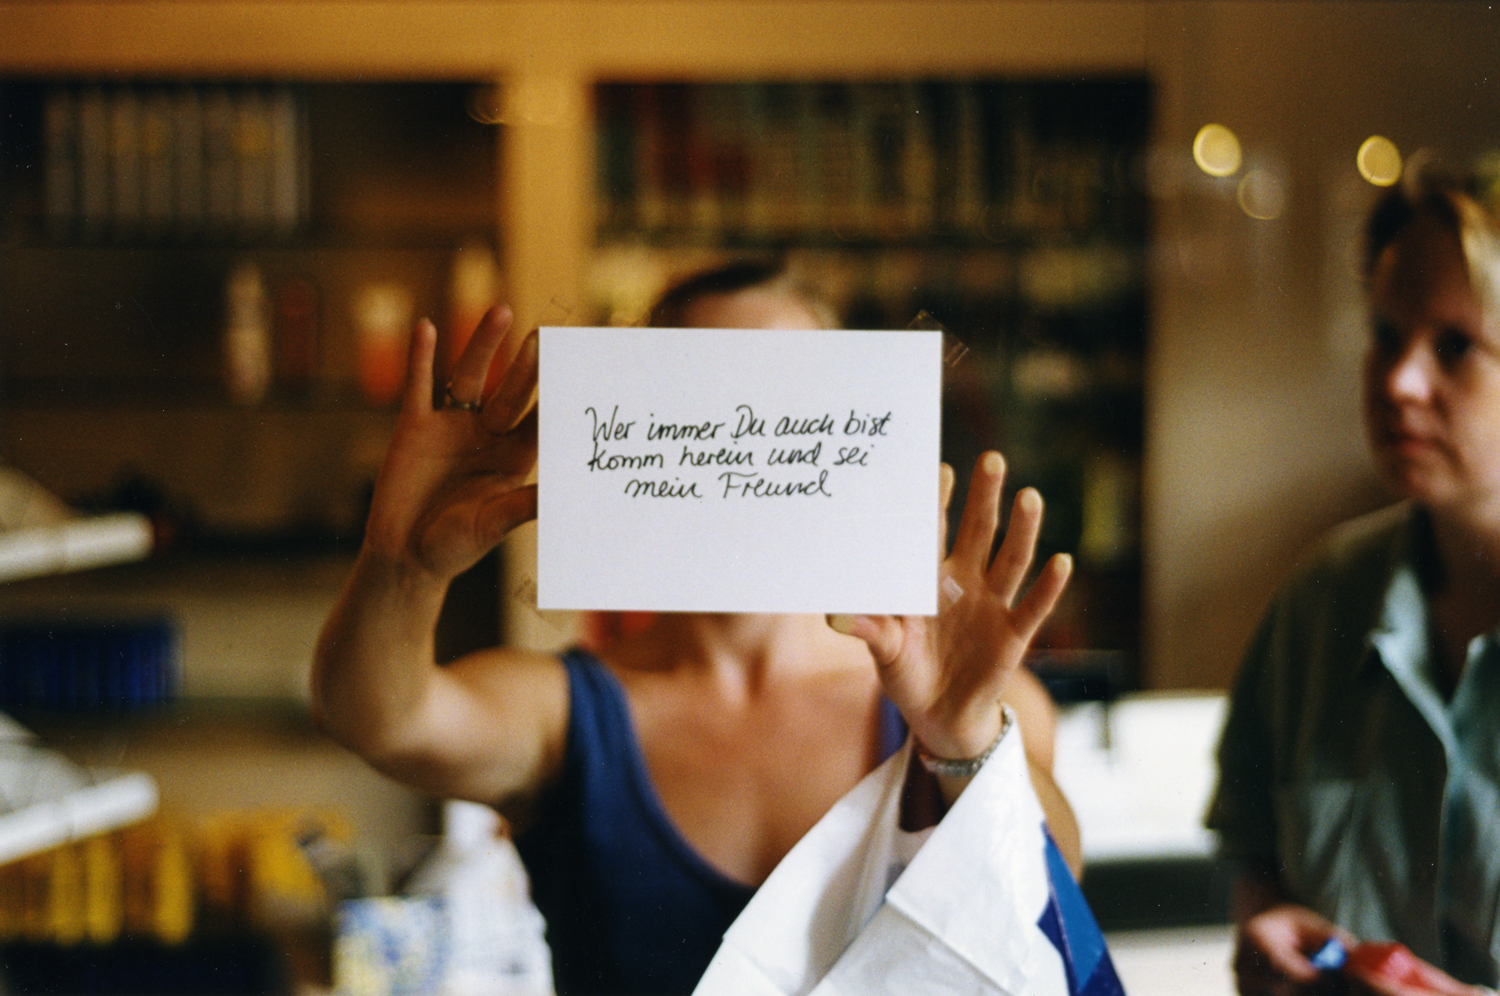 Wer immer Du auch bist
komm herein und sei
mein Freund